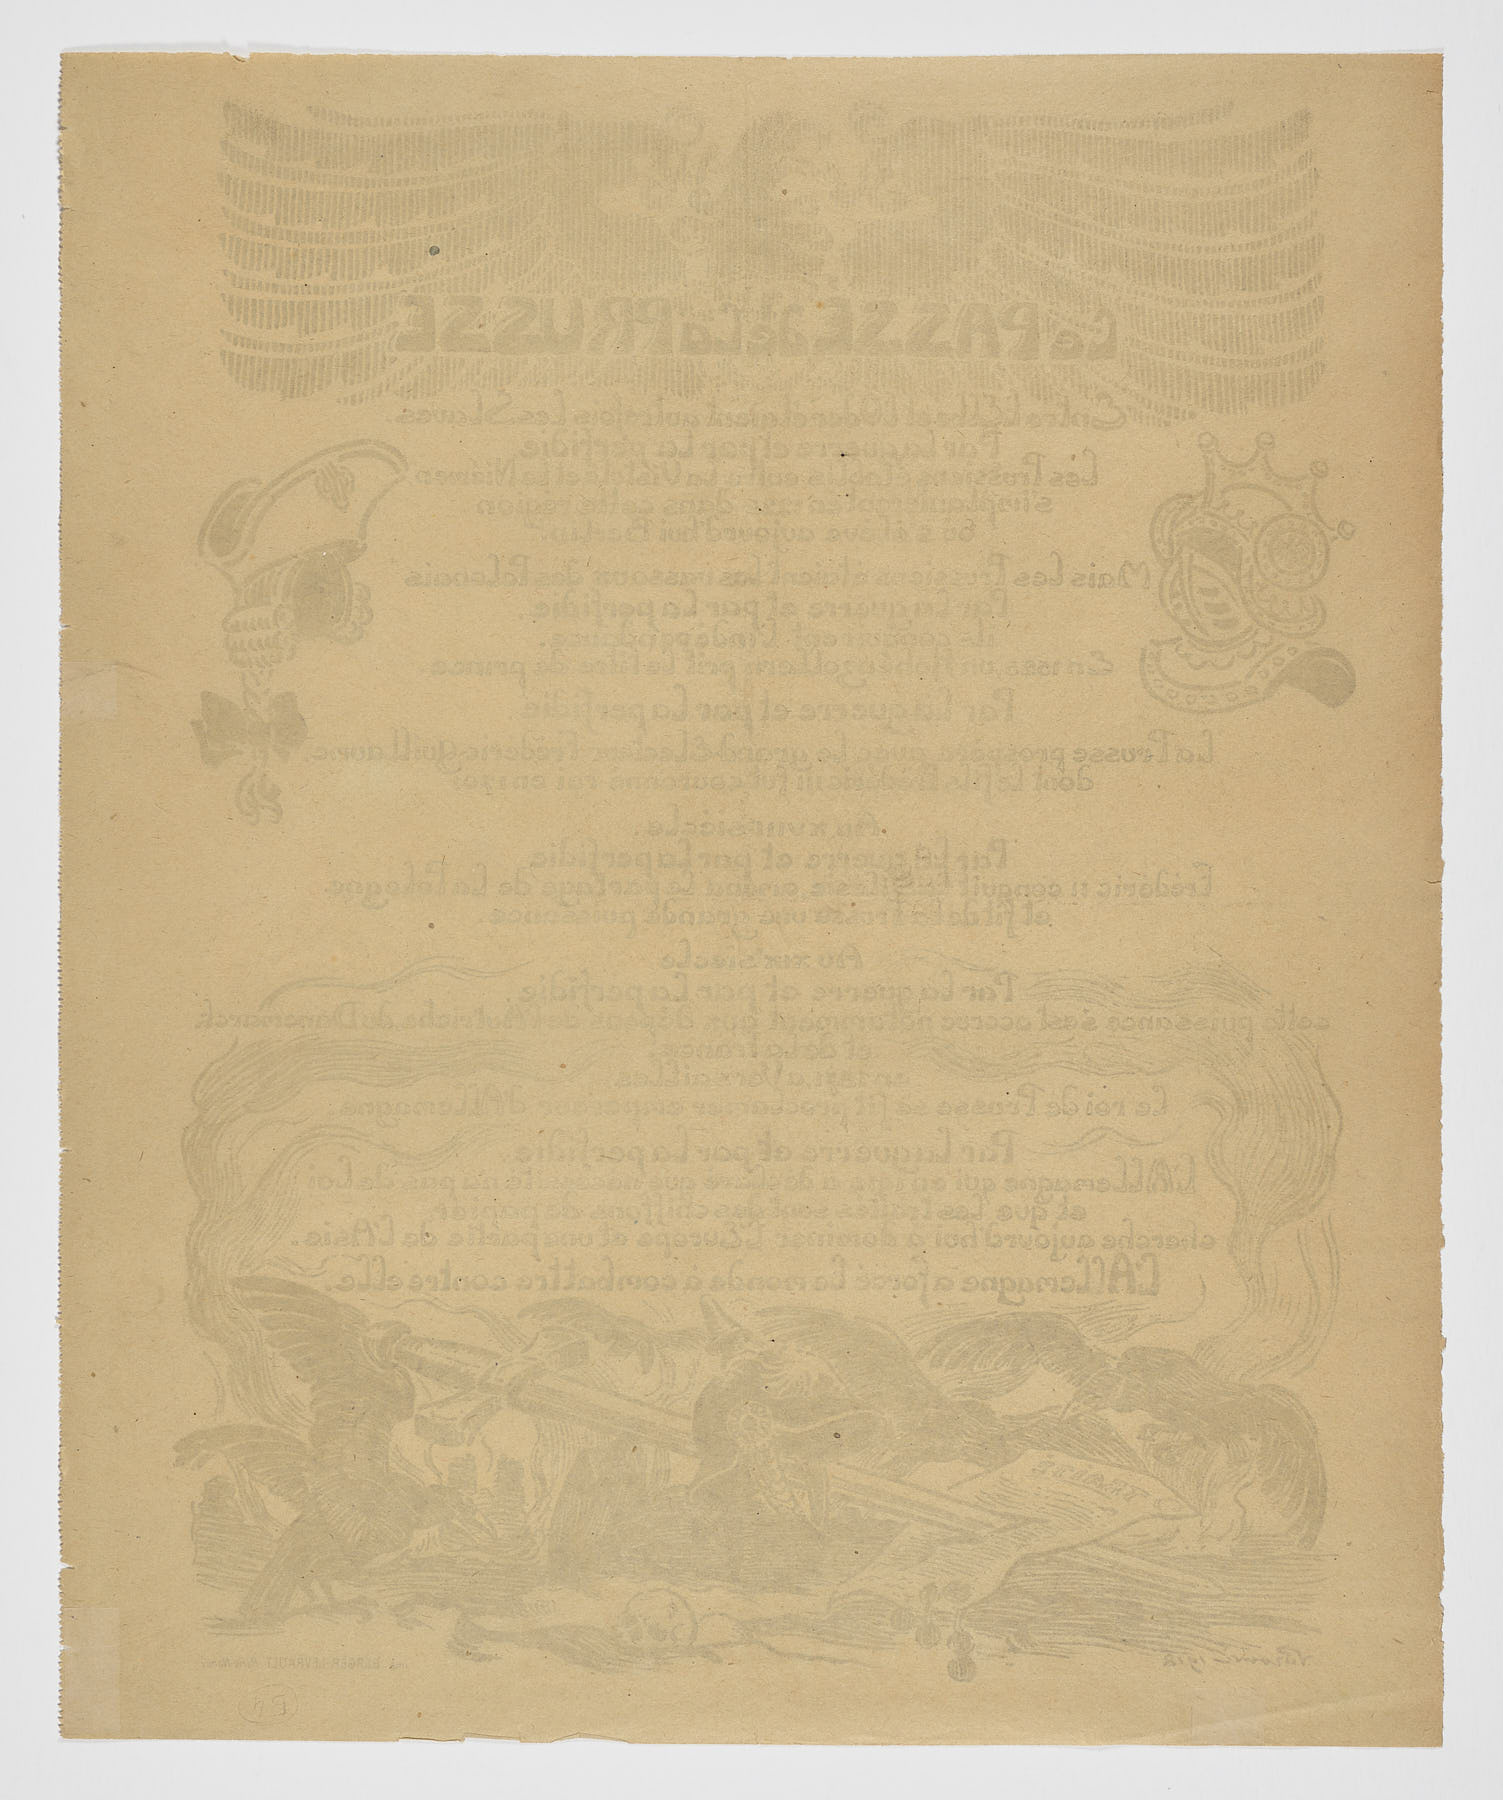 Le PASSÉ de La PRUSSE
Entre L'Elbe et L'Oder étaient autrefois Les Slaves.
Par La guerre et par La perfidie
Les Prussiens établis entre La Vistule et Le Niémen
s'implantèrent en dans cette région
où s'élève aujourd'hui Berlin.
Mais Les Prussiens étaient Les vassaux des Polonais
Par La guerre et par La perfidie.
ils conquirent L'indépendance.
En 1525 un Hohenzollern prit Le titre de prince.
Par La guerre et par La perfidie
La Prusse prospéra avec Le grand Electeur Frédéric-Guillaume,
dont Le fils Frédéric III fut couronné roi en 1701
Au XVIIIe siècle.
Par La guerre et par La perfidie
Frédéric II conquit La Silésie, amena Le partage de La Pologne
et fit de La Prusse une grande puissance.
Au XIXe siècle
Par La guerre et par La perfidie
cette puissance s'est accrue notamment aux dépens de L'Autriche du Danemarck
et de La France;
en 1871, à Versailles,
Le roi de Prusse se fit proclamer empereur d'Allemagne.
Par La guerre et par La perfidie.
L'Allemagne qui en 1914 a déclaré que nécessité n'a pas de Loi
et que Les traités sont des chiffons de papier,
cherche aujourd'hui à dominer L'Europe et une partie de L'Asie.
L'Allemagne a forcé Le monde à combattre contre elle.
TRAITÉ
BERGER-LEVRAULT